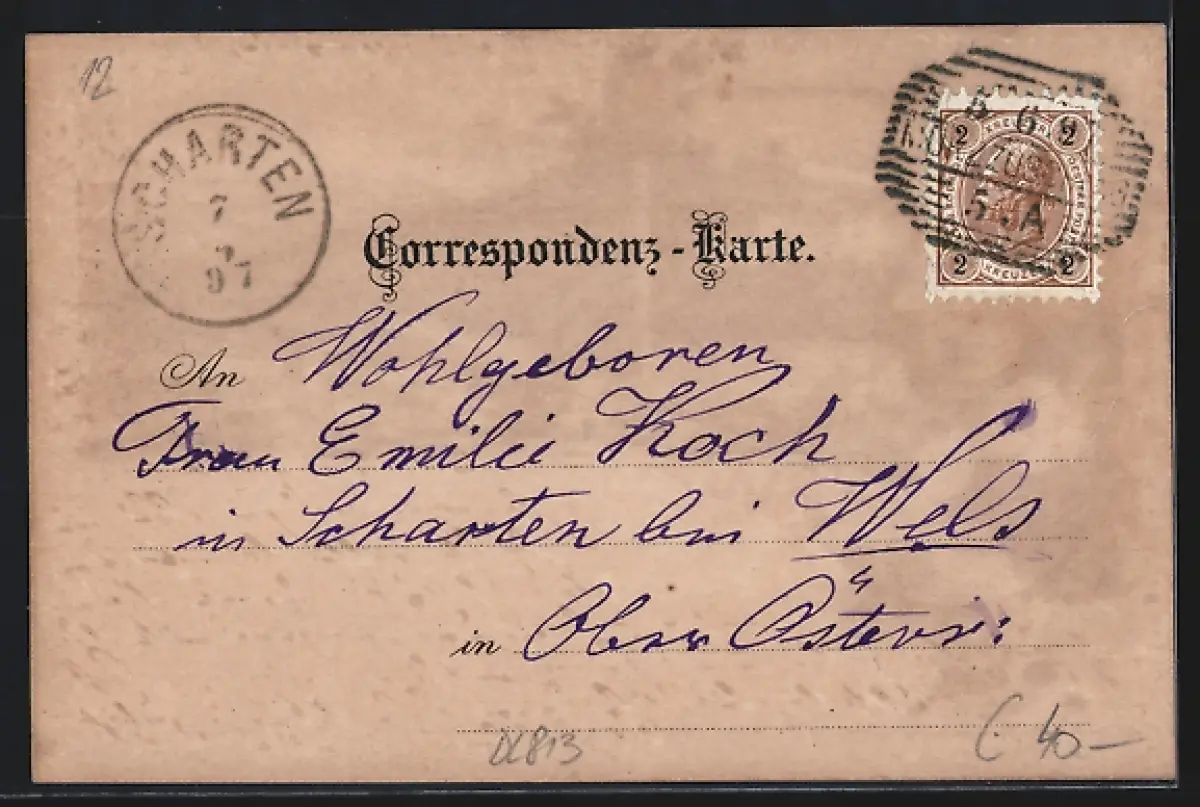 12
SCHARTEN
7
97
5 6 9
5 A
2 KREUZER 2
2 KREUZER 2
Correspondenz-Karte.
An Wohlgeboren
Frau Emilie Koch
in Scharten bei Wels
in Ober Österr:
40-